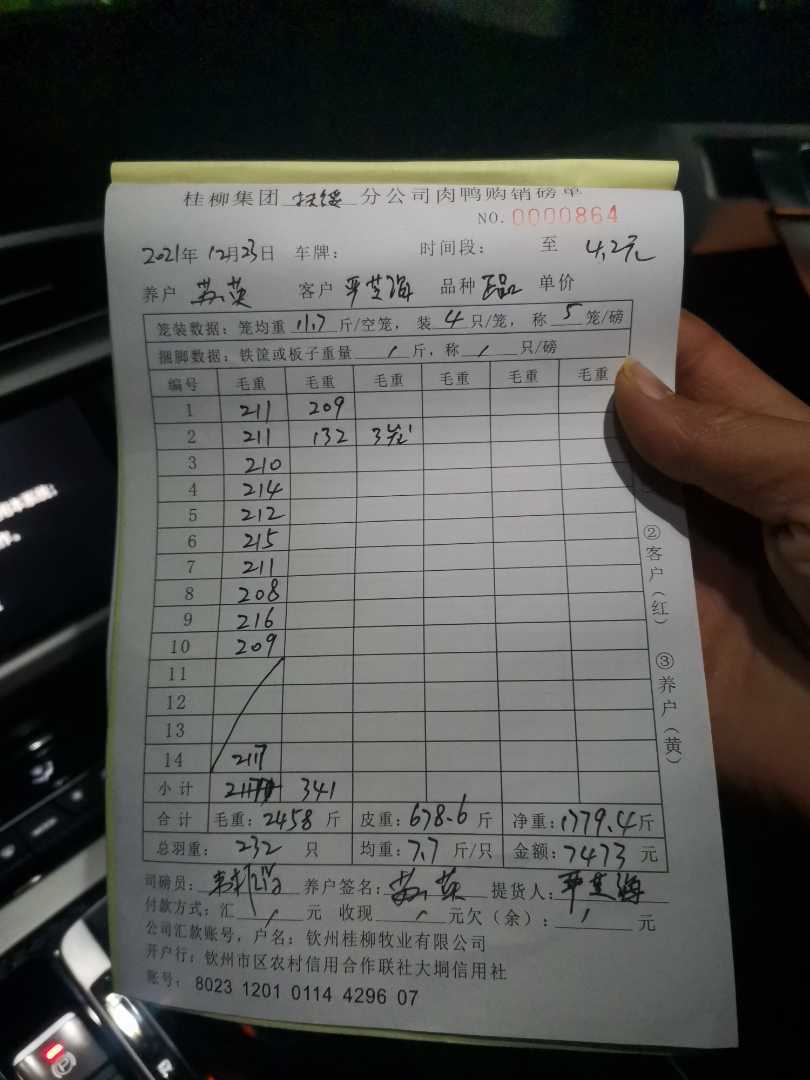 桂柳集团 扶绥 分公司肉鸭购销磅单
NO. 0000864
2021年 12月23日 车牌: 时间段: 至 4.2元
养户 苏英 客户 品种 正品 单价
笼装数据: 笼均重 11.7 斤/空笼, 装 4 只/笼, 称 5 笼/磅
捆脚数据: 铁筐或板子重量 / 斤, 称 / 只/磅
编号 毛重 毛重 毛重 毛重 毛重 毛重
1 211 209
2 211 132 3笼
3 210
4 214
5 212
6 215
7 211
8 208
9 216
10 209
11
12
13
14 2117
小计 341
合计 毛重: 2458 斤 皮重: 678.6 斤 净重: 1779.4 斤
总羽重: 232 只 均重: 7.7 斤/只 金额: 7473 元
司磅员: 养户签名: 苏英 提货人:
付款方式: 汇 / 元 收现 / 元欠(余): / 元
公司汇款账号, 户名: 钦州桂柳牧业有限公司
开户行: 钦州市区农村信用合作联社大垌信用社
账号: 8023 1201 0114 4296 07
②客户(红)
③养户(黄)